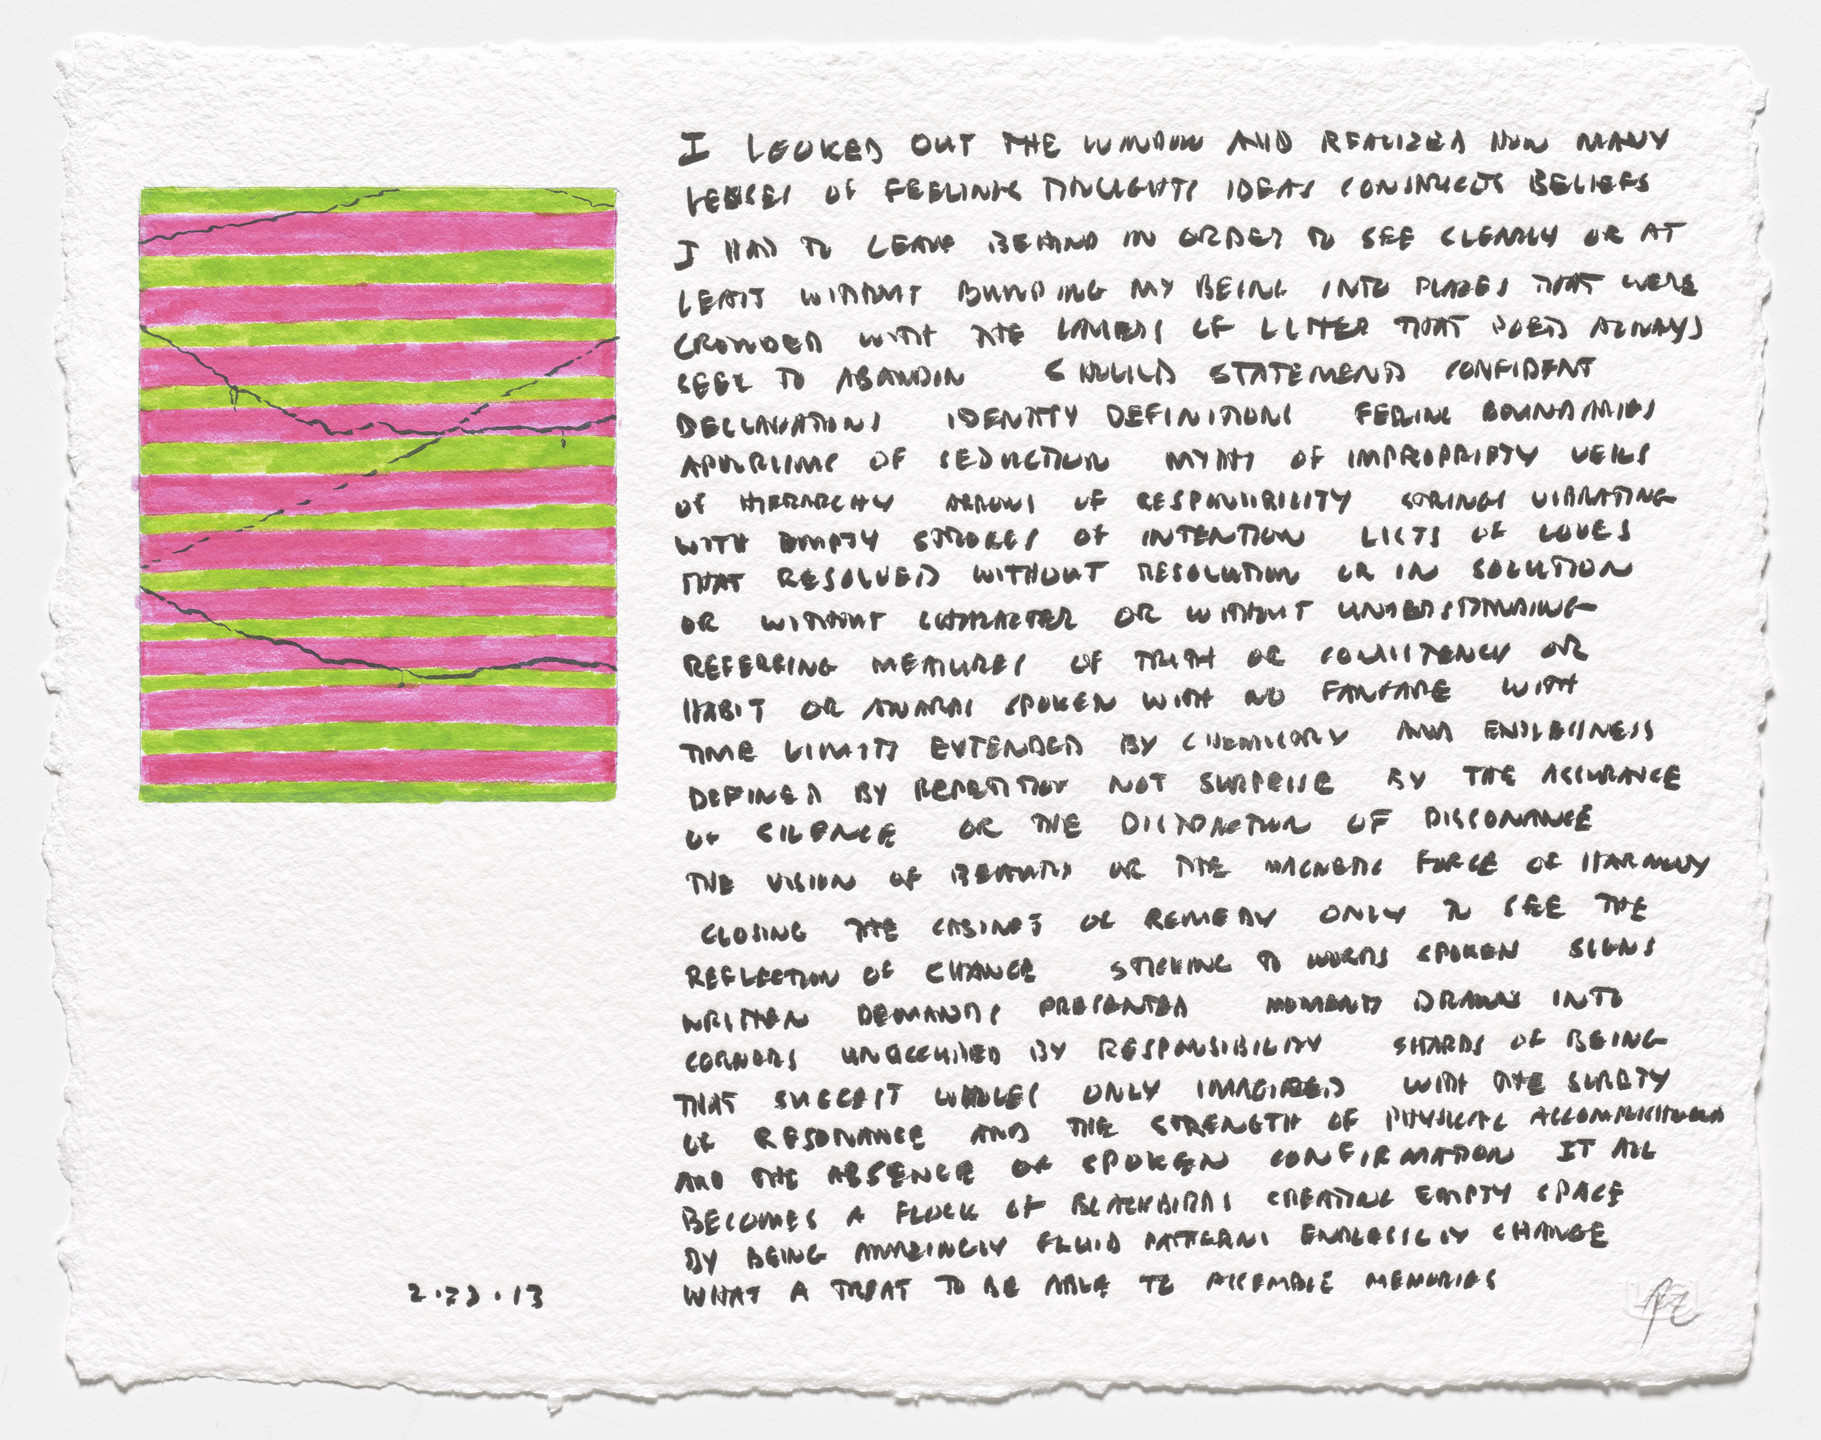 I LOOKED OUT THE WINDOW AND REALIZED HOW MANY
LENSES OF FEELINGS THOUGHTS IDEAS CONSTRUCTS BELIEFS
I HAD TO LEAVE BEHIND IN ORDER TO SEE CLEARLY OR AT
LEAST WITHOUT BUNDING MY BEING INTO PLACES THAT WERE
CROWDED WITH THE LAYERS OF LITTER THAT POETS ALWAYS
SEEK TO ABANDON SHOULD STATEMENTS CONFIDENT
DECLARATIONS IDENTITY DEFINITIONS FEELING BOUNDARIES
APHORISMS OF SEDUCTION MYTHS OF IMPROPRIETY VEILS
OF HIERARCHY ARROWS OF RESPONSIBILITY STRINGS VIBRATING
WITH EMPTY STROKES OF INTENTION LISTS OF LOVES
THAT RESOLVED WITHOUT RESOLUTION OR IN SOLUTION
OR WITHOUT CHARACTER OR WITHOUT UNDERSTANDING
REFEREING MEASURES OF TRUTH OR CONSISTENCY OR
HABIT OR AWARDS SPOKEN WITH NO FANFARE WITH
TIME LIMITS EXTENDED BY CHEMISTRY AND ENDLESSNESS
DEFINED BY REPETITION NOT SURPRISE BY THE ASSURANCE
OF SILENCE OR THE DISTRACTION OF DISSONANCE
THE VISION OF BEAUTY OR THE MAGNETIC FORCE OF HARMONY
CLOSING THE CABINET OF REMEDY ONLY TO SEE THE
REFLECTION OF CHANGE STICKING TO WORDS SPOKEN SIGNS
WRITTEN DEMANDS PRESENTED MOMENTS DRAWN INTO
CORNERS UNOCCUPIED BY RESPONSIBILITY SHARDS OF BEING
THAT SUGGEST WHOLES ONLY IMAGINED WITH THE SURETY
OF RESONANCE AND THE STRENGTH OF PHYSICAL ACCOMPLISHMENT
AND THE ABSENCE OF SPOKEN CONFIRMATION IT ALL
BECOMES A FLOCK OF BLACKBIRDS CREATING EMPTY SPACE
BY BEING AMAZINGLY FLUID PATTERNS ENDLESSLY CHANGE
WHAT A TREAT TO BE ABLE TO ASSEMBLE MEMORIES
2.23.13